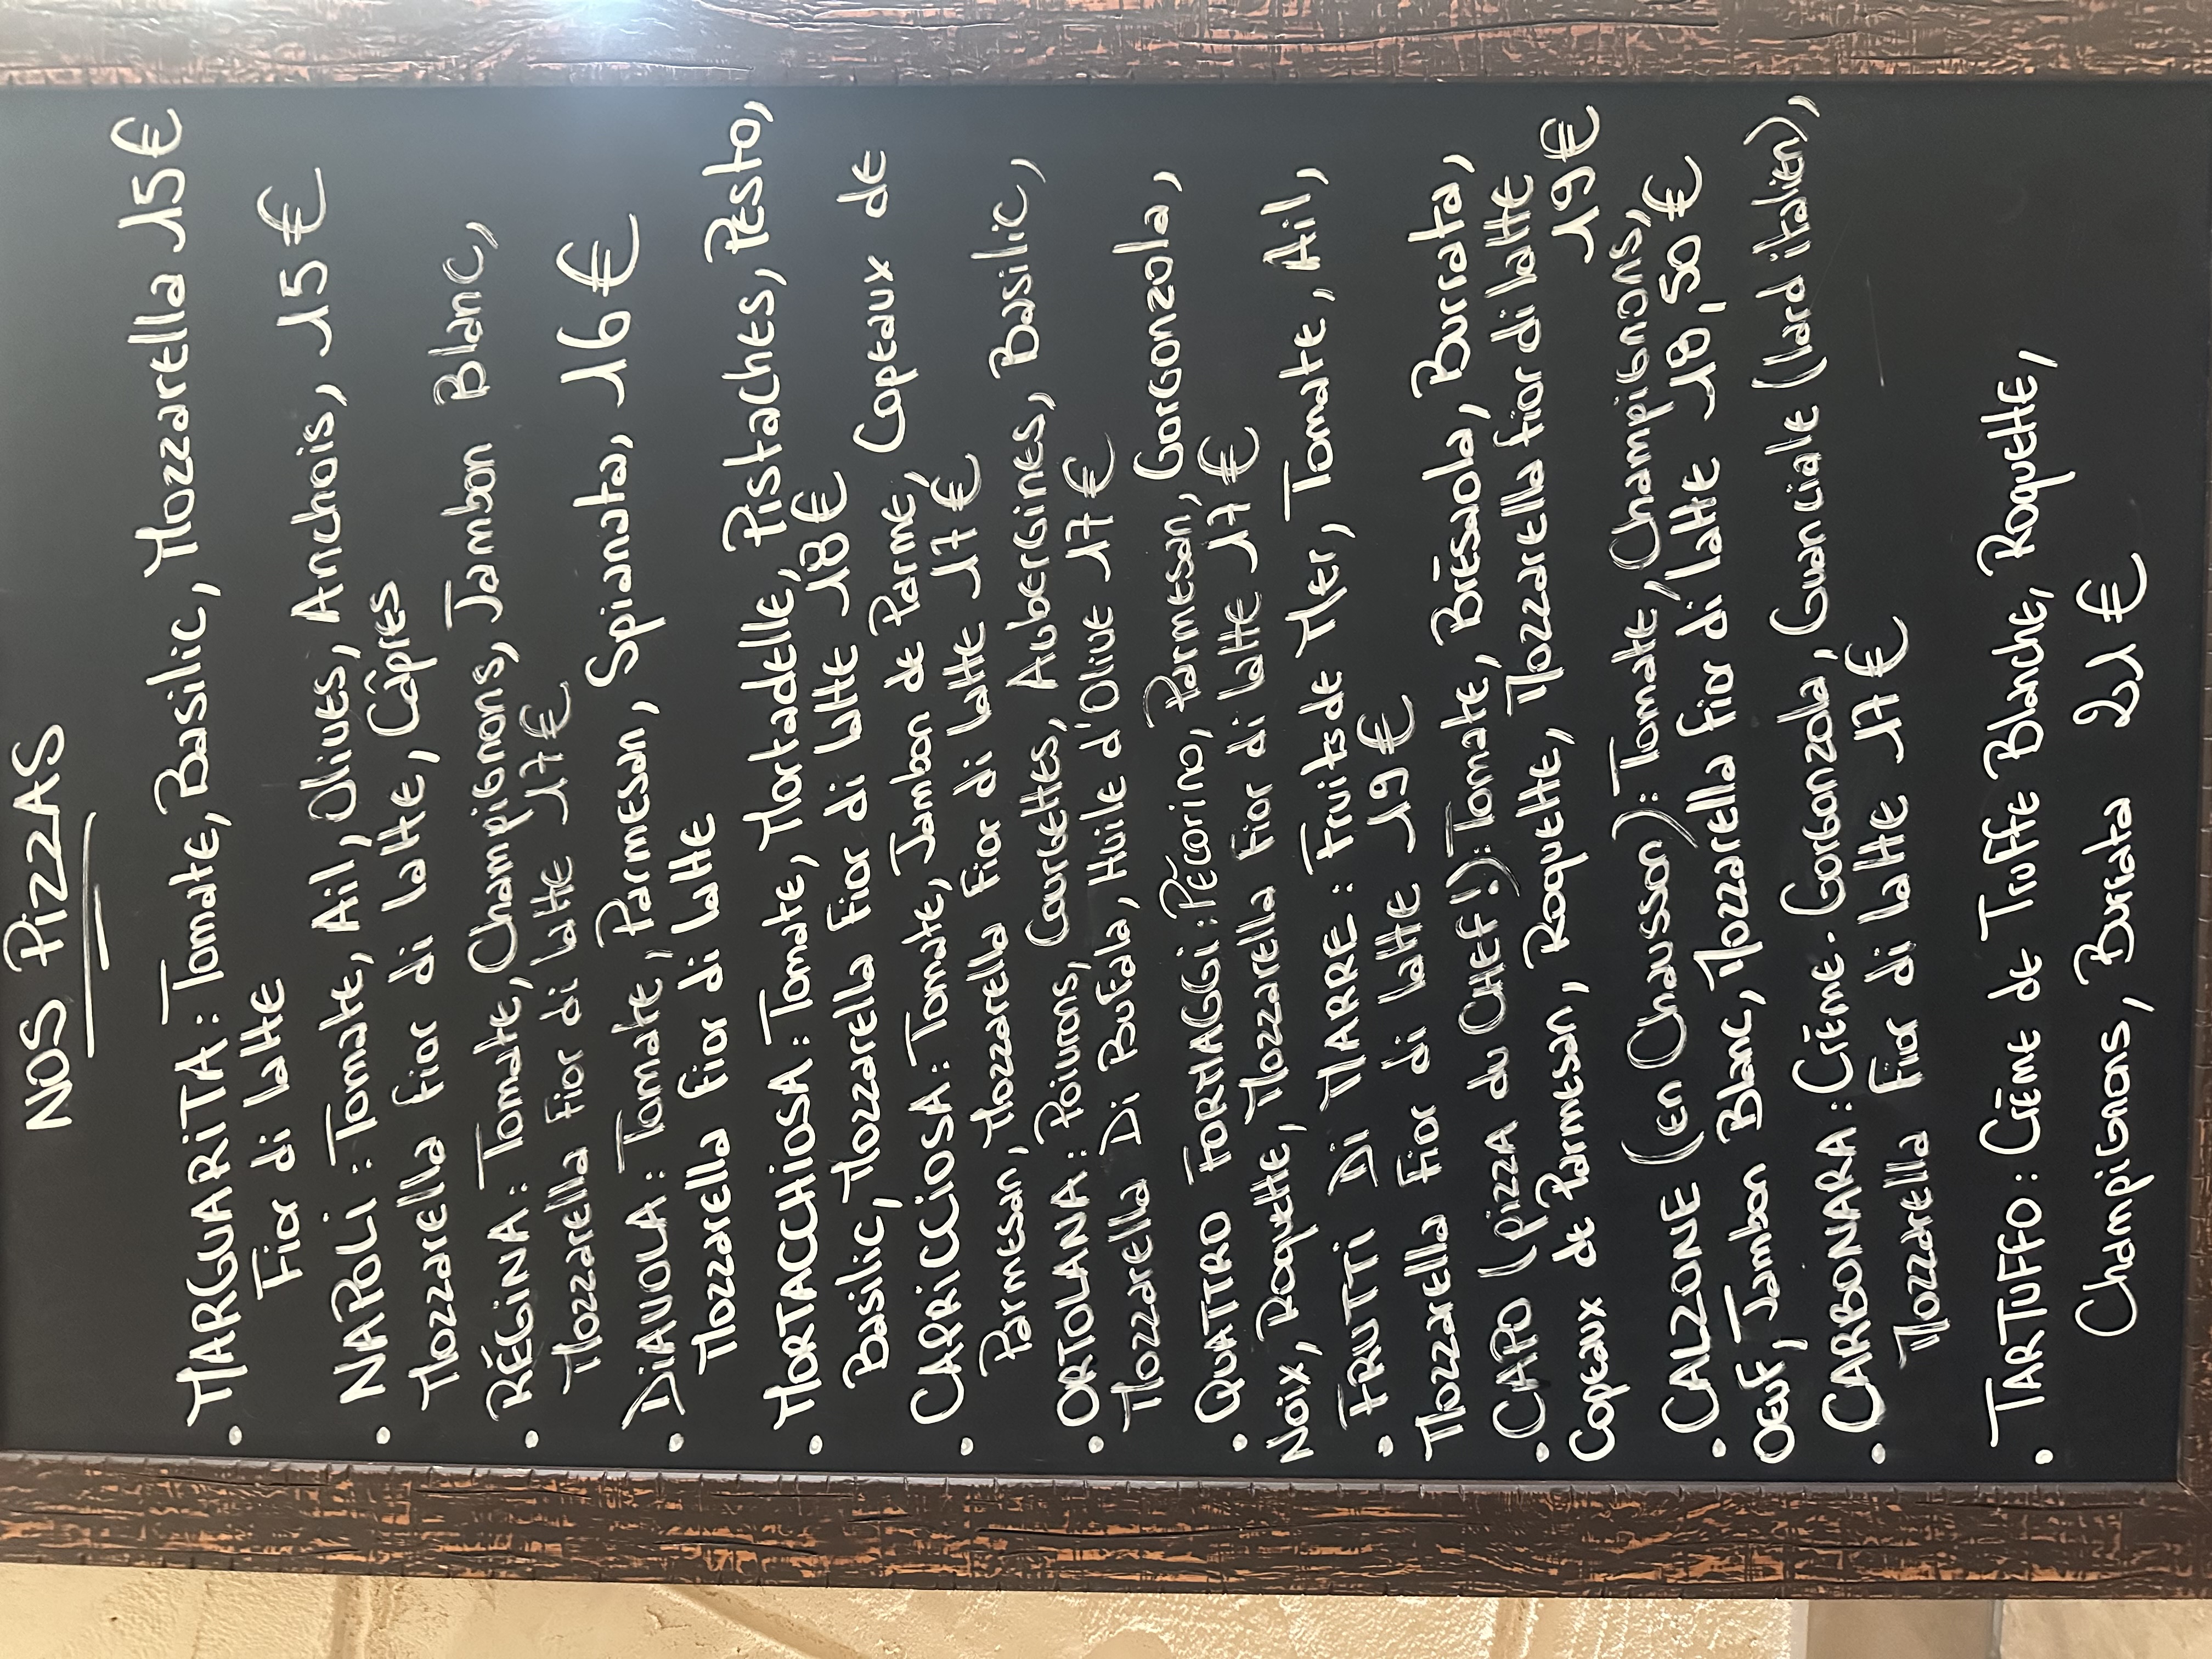 NOS PIZZAS
• MARGUARITA : Tomate, Basilic, Mozzarella 15€
Fior di latte
• NAPOLI : Tomate, Ail, Olives, Anchois, 15€
Mozzarella Fior di latte, Câpres
• RÉGINA : Tomate, Champignons, Jambon Blanc,
Mozzarella Fior di latte 17€
• DIAVOLA : Tomate, Parmesan, Spianata, 16€
Mozzarella Fior di latte
• MORTACCHIOSA : Tomate, Mortadelle, Pistaches, Pesto,
Basilic, Mozzarella Fior di latte 18€
• CAPRICCIOSA : Tomate, Jambon de Parme, Copeaux de
Parmesan, Mozzarella Fior di latte 17€
• ORTOLANA : Poivrons, Courgettes, Aubergines, Basilic,
Mozzarella Di Bufala, Huile d'Olive 17€
• QUATTRO FORMAGGI : Pécorino, Parmesan, Gorgonzola,
Noix, Roquette, Mozzarella Fior di latte 17€
• FRUTTI DI MARRE : Fruits de Mer, Tomate, Ail,
Mozzarella Fior di latte 19€
• CAPO (pizza du CHEF!) : Tomate, Brésaola, Burrata,
Copeaux de Parmesan, Roquette, Mozzarella Fior di latte
19€
• CALZONE (en Chausson) : Tomate, Champignons,
Oeuf, Jambon Blanc, Mozzarella Fior di latte 18,50€
• CARBONARA : Crème. Gorgonzola, Guanciale (lard italien),
Mozzarella Fior di latte 17€
• TARTUFFO : Crème de Truffe Blanche, Roquette,
Champignons, Burrata 21€